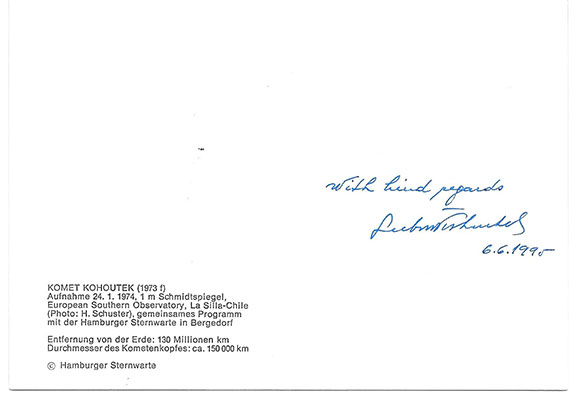 With kind regards
Lubos Kohoutek
6.6.1995
KOMET KOHOUTEK (1973 f)
Aufnahme 24. 1. 1974, 1 m Schmidtspiegel,
European Southern Observatory, La Silla-Chile
(Photo: H. Schuster), gemeinsames Programm
mit der Hamburger Sternwarte in Bergedorf
Entfernung von der Erde: 130 Millionen km
Durchmesser des Kometenkopfes: ca. 150 000 km
© Hamburger Sternwarte